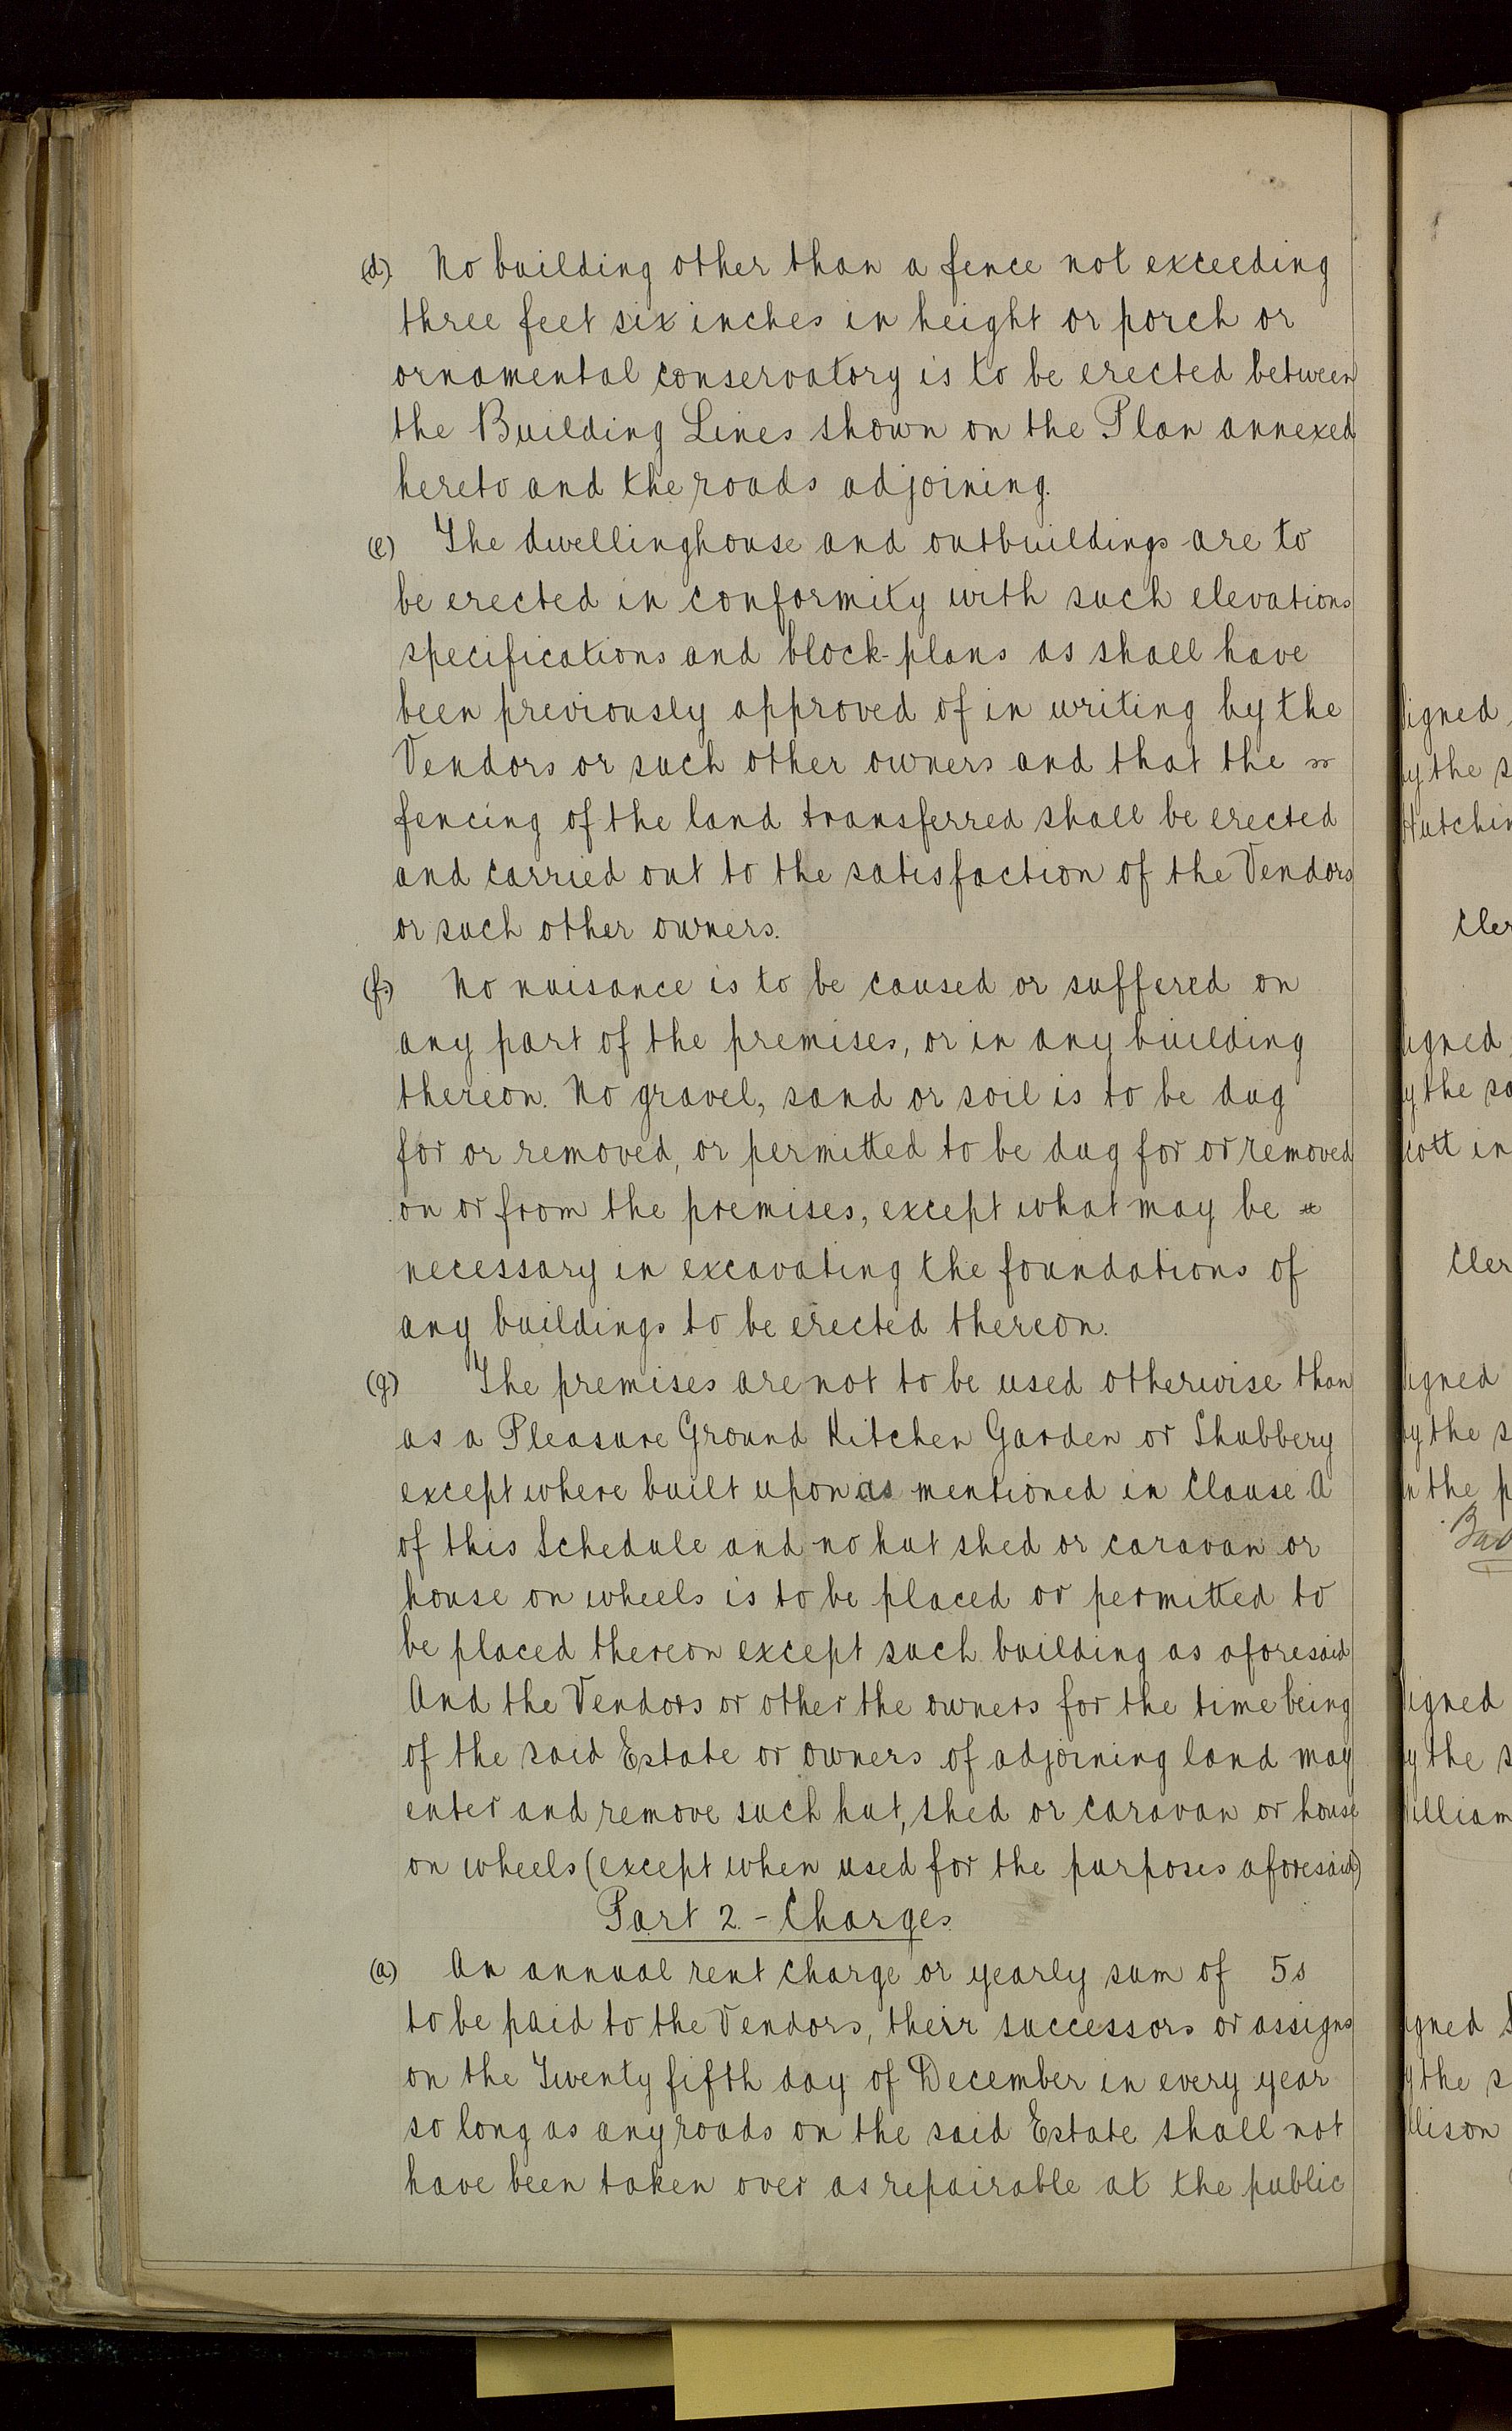 (d) No building other than a fence not exceeding
three feet six inches in height or porch or
ornamental conservatory is to be erected between
the Building Lines shown on the Plan annexed
hereto and the roads adjoining.
(e) The dwellinghouse and outbuildings are to
be erected in conformity with such elevations
specifications and block-plans as shall have
been previously approved of in writing by the
Vendors or such other owners and that the
fencing of the land transferred shall be erected
and carried out to the satisfaction of the Vendors
or such other owners.
(f.) No nuisance is to be caused or suffered on
any part of the premises, or in any building
thereon. No gravel, sand or soil is to be dug
for or removed, or permitted to be dug for or removed
on or from the premises, except what may be
necessary in excavating the foundations of
any buildings to be erected thereon.
(g) The premises are not to be used otherwise than
as a Pleasure Ground Kitchen Garden or Shubbery
except where built upon as mentioned in Clause A
of this Schedule and no hut shed or caravan or
house on wheels is to be placed or permitted to
be placed thereon except such building as aforesaid
And the Vendors or other the owners for the time being
of the said Estate or owners of adjoining land may
enter and remove such hut, shed or caravan or house
on wheels (except when used for the purposes aforesaid)
Part 2. - Charges
(a) An annual rent charge or yearly sum of 5s
to be paid to the Vendors, their successors or assigns
on the Twenty fifth day of December in every year
so long as any roads on the said Estate shall not
have been taken over as repairable at the public
igned
by the s
Hutchin
Cler
igned
y the sa
cott in
Cler
igned
by the s
in the p
igned
by the s
illiam
igned
y the s
llison